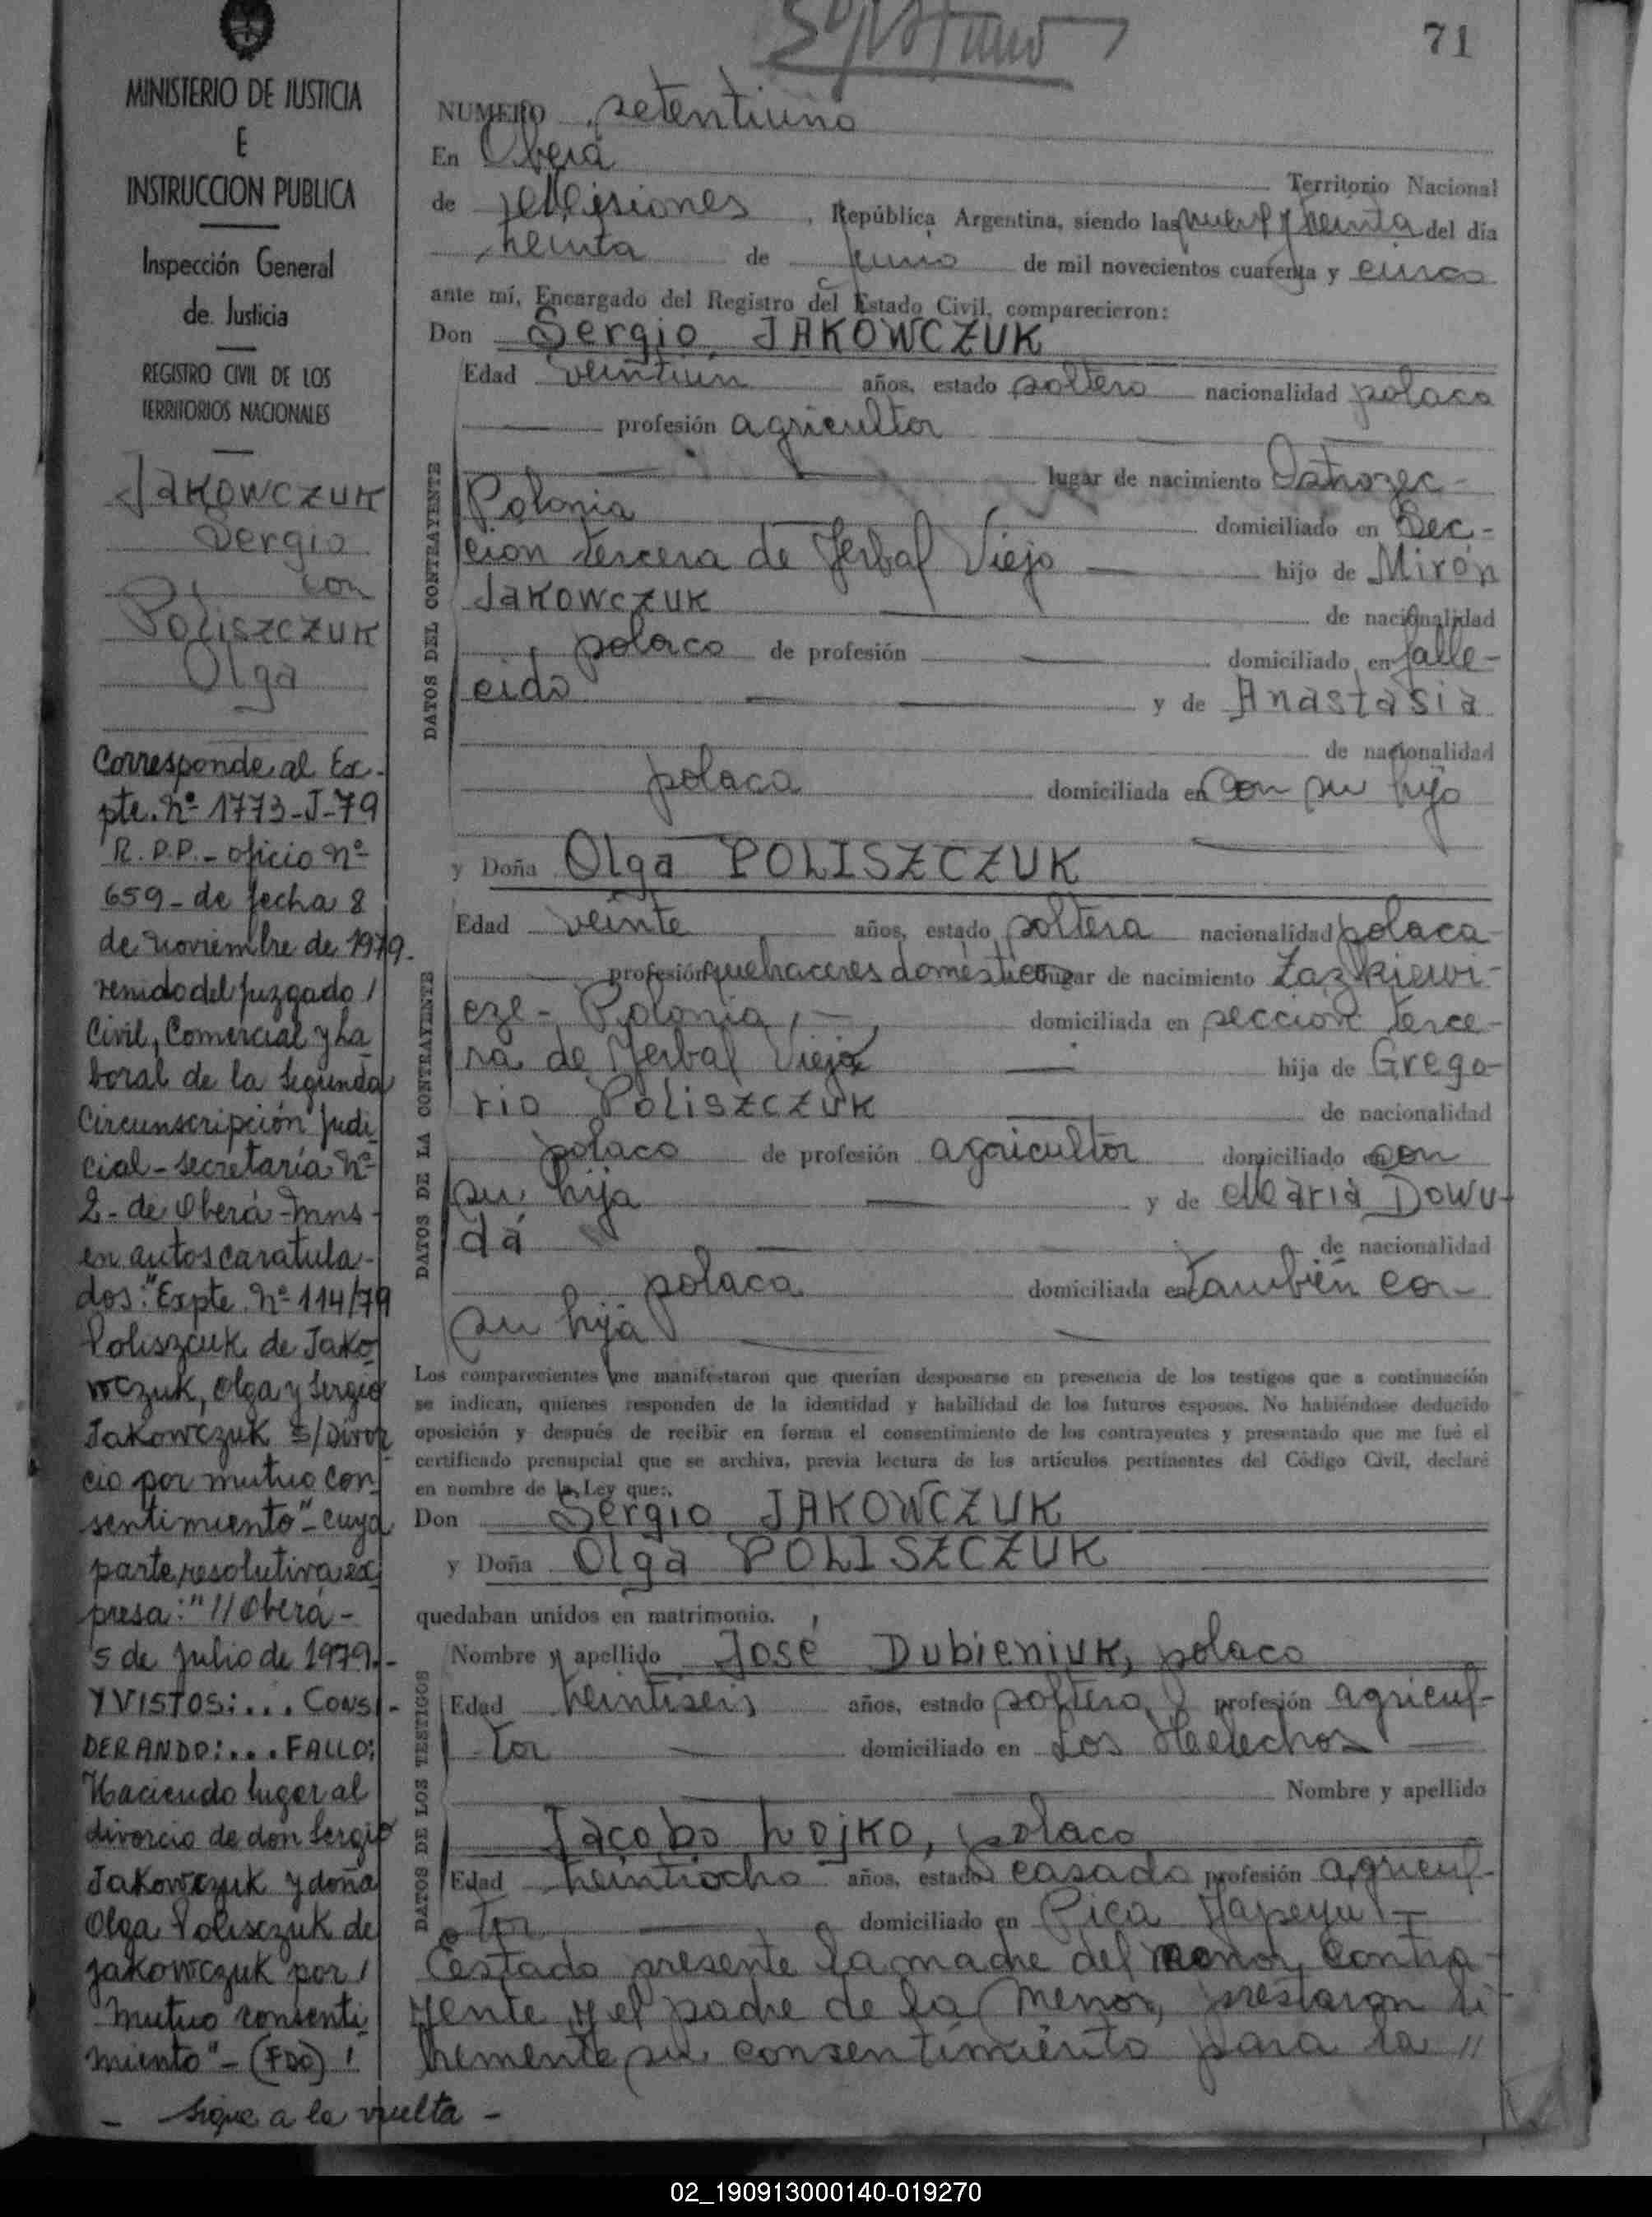 71
MINISTERIO DE JUSTICIA
E
INSTRUCCION PUBLICA
Inspección General
de Justicia
REGISTRO CIVIL DE LOS
TERRITORIOS NACIONALES
Jakowczuk
Sergio
con
Poliszczuk
Olga
Corresponde al Ex-
pte. Nº 1773-J-79
R.P.P.- oficio Nº
659- de fecha 8
de Noviembre de 1979.
venido del Juzgado /
Civil, Comercial y La
boral de la Segunda
Circunscripción Judi
cial - Secretaría Nº
2- de Oberá - Mns -
en autos caratula-
dos: "Expte. Nº 114/79
Poliszcuk de Jako
wczuk, Olga y Sergio
Jakowczuk S/Divor
cio por mutuo con
sentimiento" - cuya
parte resolutiva ex
presa: "// Oberá -
5 de Julio de 1979.-
Y VISTOS:... CONSI-
DERANDO:... FALLO:
Haciendo lugar al
divorcio de don Sergio
Jakowczuk y doña
Olga Polisczuk de
Jakowczuk por /
mutuo consenti
miento" - (FDO) !
- Sigue a la vuelta -
NUMERO setentiuno
En Oberá
Territorio Nacional
de Misiones, República Argentina, siendo las nueve y treinta del día
treinta de junio de mil novecientos cuarenta y cinco
ante mí, Encargado del Registro del Estado Civil, comparecieron:
Don Sergio JAKOWCZUK
Edad veintiun años, estado soltero nacionalidad polaca
profesión agricultor
DATOS DEL CONTRAYENTE
lugar de nacimiento Ostrozec -
Polonia domiciliado en Sec-
cion tercera de Yerbal Viejo hijo de Mirón
Jakowczuk de nacionalidad
polaco de profesión domiciliado en falle-
cido y de Anastasia
de nacionalidad
polaca domiciliada en con su hijo
y Doña Olga POLISZCZUK
Edad veinte años, estado soltera nacionalidad polaca
profesión quehaceres domésticos lugar de nacimiento Zazkiewi-
cze - Polonia, - domiciliada en sección terce-
ra de Yerbal Viejo hija de Grego-
rio Poliszczuk de nacionalidad
DATOS DE LA CONTRAYENTE
polaco de profesión agricultor domiciliado en con
su hija y de María Dowu-
da de nacionalidad
polaca domiciliada en también con
su hija
Los comparecientes me manifestaron que querían desposarse en presencia de los testigos que a continuación
se indican, quienes responden de la identidad y habilidad de los futuros esposos. No habiéndose deducido
oposición y después de recibir en forma el consentimiento de los contrayentes y presentado que me fué el
certificado prenupcial que se archiva, previa lectura de los artículos pertinentes del Código Civil, declaré
en nombre de la Ley que:
Don Sergio JAKOWCZUK
y Doña Olga POLISZCZUK
quedaban unidos en matrimonio.
Nombre y apellido José Dubieniuk, polaco
Edad veintiseis años, estado soltero profesión agricul-
tor domiciliado en Los Helechos
DATOS DE LOS TESTIGOS
Nombre y apellido
Jacobo Lojko, polaco
Edad veintiocho años, estado casado profesión agricul-
tor domiciliado en Pica Yapeyu -
Estado presente la madre del menor contra-
yente y el padre de la menor, prestaron li
bremente su consentimiento para la //
02_190913000140-019270